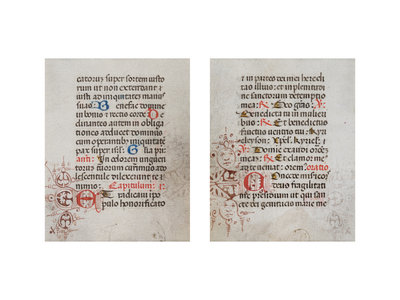 catorum super sortem iusto
rum ut non extendant
iusti ad iniquitatem manus
suas: Benefac domine
in bonis et rectis corde De
clinantes autem in obliga
tiones adducet dominus
cum operantibus iniquitate
pax super isrl: Glia pa
ann: In odorem unguen
torum suorum currimus ad
olescentule dilexerunt te
nimis: Capitulum:
Et radicavi in po
pulo honorificato
et in partes dei mei heredi
tas illius: et in plenitudi
ne sanctorum detentio
mea: Deo gratias:
Benedicta tu in mulieri
bus: Et benedictus
fructus ventris tui: Kyri
eleyson: Xpe l. Kyriel:
Domine exaudi oronem
meam: Et clamor
meus ad te veniat: orem: oratio
Concede misericors
deus fragilitati
nre presidium ut qui sanc
te dei genitricis marie me